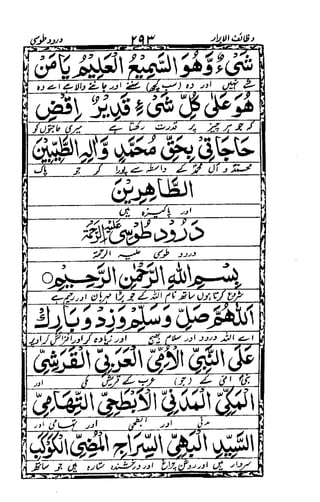 وظائف الابرار ۲۹۳ درود طوسی
شَیْءٌ وَّهُوَ السَّمِیْعُ الْعَلِیْمُ یَا مَنْ
شے نہیں اور وہ سننے اور جاننے والا ہے اے وہ
هُوَ عَلٰی كُلِّ شَیْءٍ قَدِیْرٌ اِقْضِ
کہ جو ہر چیز پر قدرت رکھتا ہے میری حاجتوں کو
حَاجَاتِیْ بِحَقِّ مُحَمَّدٍ وَّاٰلِهِ الطَّیِّبِیْنَ
محمدؐ و آل محمدؐ کے واسطہ سے پورا کر جو پاک
الطَّاهِرِیْنَ
اور پاکیزہ ہیں
دَرُودِ طُوسِی عَلَیْهِ الرَّحْمَۃ
درود طوسی علیہ الرحمۃ
بِسْمِ اللهِ الرَّحْمٰنِ الرَّحِیْمِ
شروع کرتا ہوں ساتھ نام اللہ کے جو بڑا مہربان اور رحیم ہے
اَللّٰهُمَّ صَلِّ وَسَلِّمْ وَزِدْ وَبَارِكْ
اے اللہ درود اور سلام بھیج اور زیادہ کر اور
عَلَی النَّبِیِّ الْاُمِّیِّ الْعَرَبِیِّ الْقُرَشِیِّ
نبی امی کے (جو) عرب کے قریش مکی اور
الْمَكِّیِّ الْمَدَنِیِّ الْاَبْطَحِیِّ التِّهَامِیِّ
مدنی اور ابطحی اور تہامی اور
السَّیِّدِ الْبَهِیِّ السِّرَاجِ الْمُضِیِّ الْكَوْكَبِ
سردار ہیں اور روشن چراغ اور درخشندہ ستارہ ہیں جو ساتھ